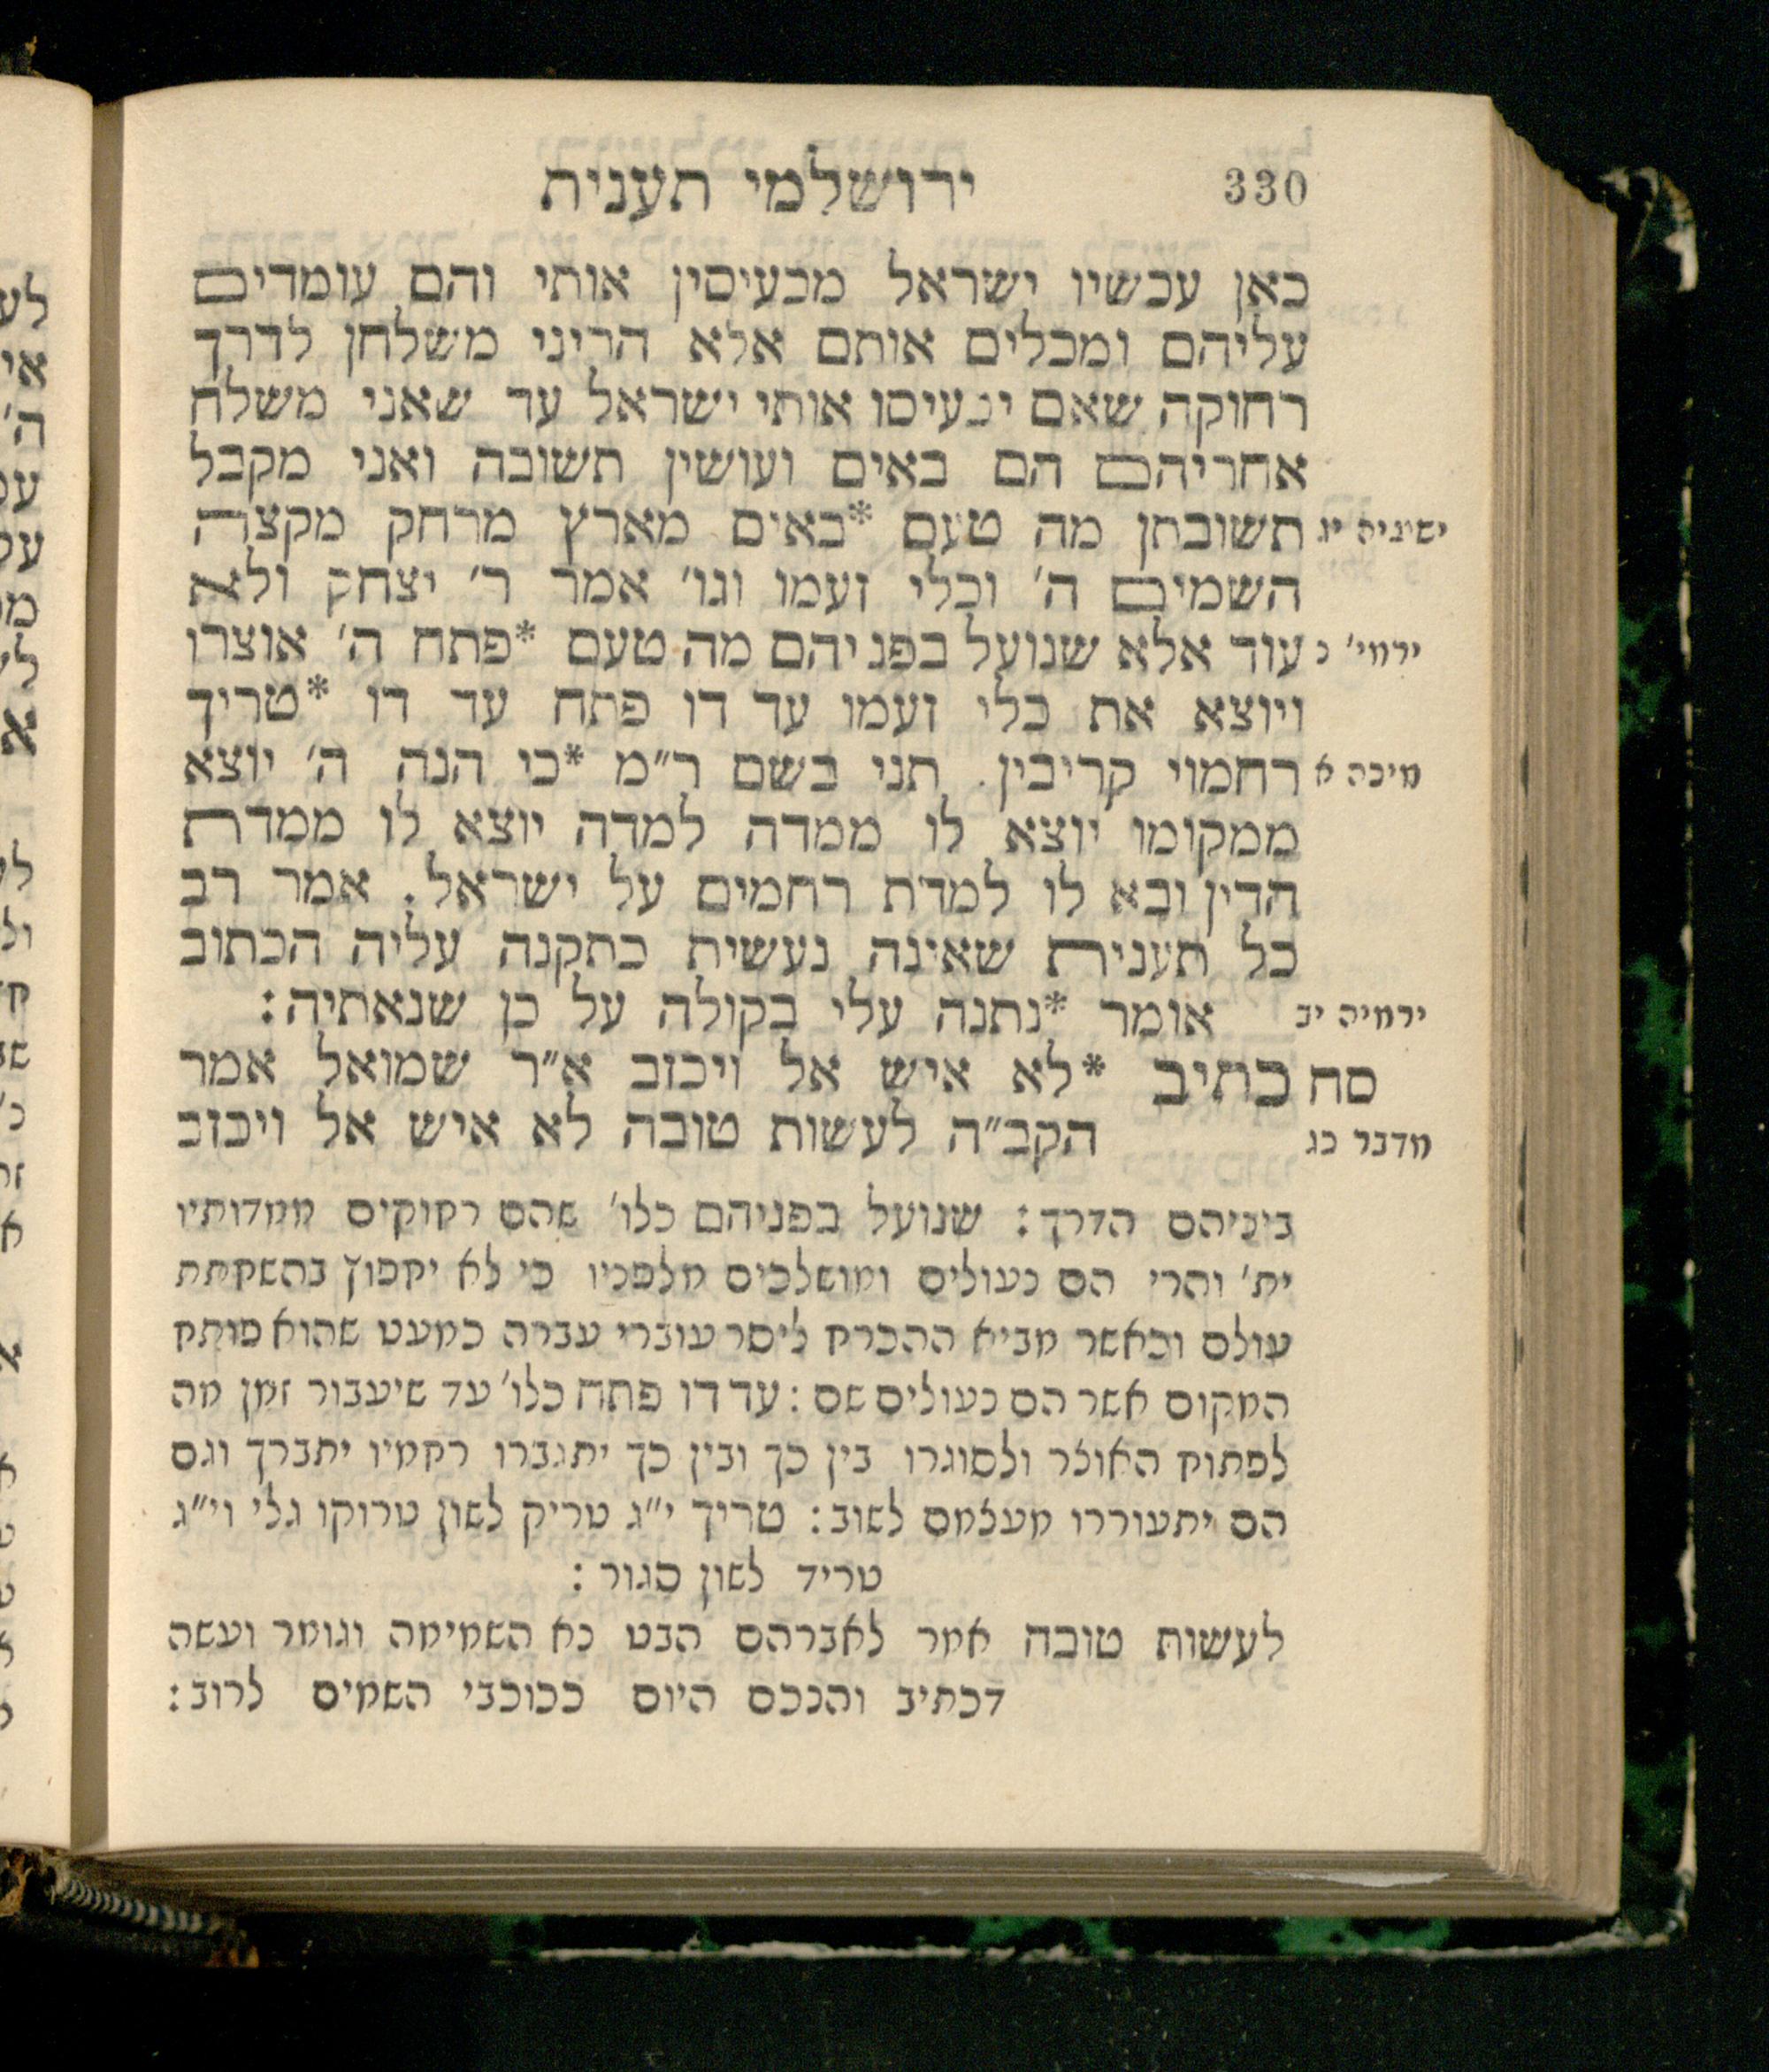 330 ירושלמי תענית
כאן עכשיו ישראל מכעיסין אותי והם עומדים
עליהם ומכלים אותם אלא הריני משלחן לדרך
רחוקה שאם יכעיסו אותי ישראל עד שאני משלח
אחריהם הם באים ועושין תשובה ואני מקבל
ישעיה יג תשובתן מה טעם *באים מארץ מרחק מקצה
השמים ה׳ וכלי זעמו וגו׳ אמר ר׳ יצחק ולא
ירמי׳ נ עוד אלא שנועל בפניהם מה טעם *פתח ה׳ אוצרו
ויוצא את כלי זעמו עד דו פתח עד דו *טריך
מיכה א רחמוי קריבין. תני בשם ר״מ *כי הנה ה׳ יוצא
ממקומו יוצא לו ממדה למדה יוצא לו ממדת
הדין ובא לו למדת רחמים על ישראל. אמר רב
כל תענית שאינה נעשית כתקנה עליה הכתוב
ירמיה יב אומר *נתנה עלי בקולה על כן שנאתיה:
סח כתיב *לא איש אל ויכזב א״ר שמואל אמר
מדבר כג הקב״ה לעשות טובה לא איש אל ויכזב
ביניהם הדרך: שנועל בפניהם כלו׳ שהם רחוקים ממדותיו
ית׳ והרי הם נעולים ומושלכים מלפניו כי לא יחפוץ בהשחתת
עולם וכאשר מביא ההכרח ליסר עוברי עברה כמעט שהוא פותח
המקום אשר הם נעולים שם: עד דו פתח כלו׳ עד שיעבור זמן מה
לפתוח האוצר ולסוגרו בין כך ובין כך יתגברו רחמיו יתברך וגם
הם יתעוררו מעצמם לשוב: טריך י״ג טריק לשון טרוקו גלי וי״ג
טריד לשון סגור:
לעשות טובה אמר לאברהם הבט נא השמימה וגומר ועשה
דכתיב והנכם היום ככוכבי השמים לרוב: